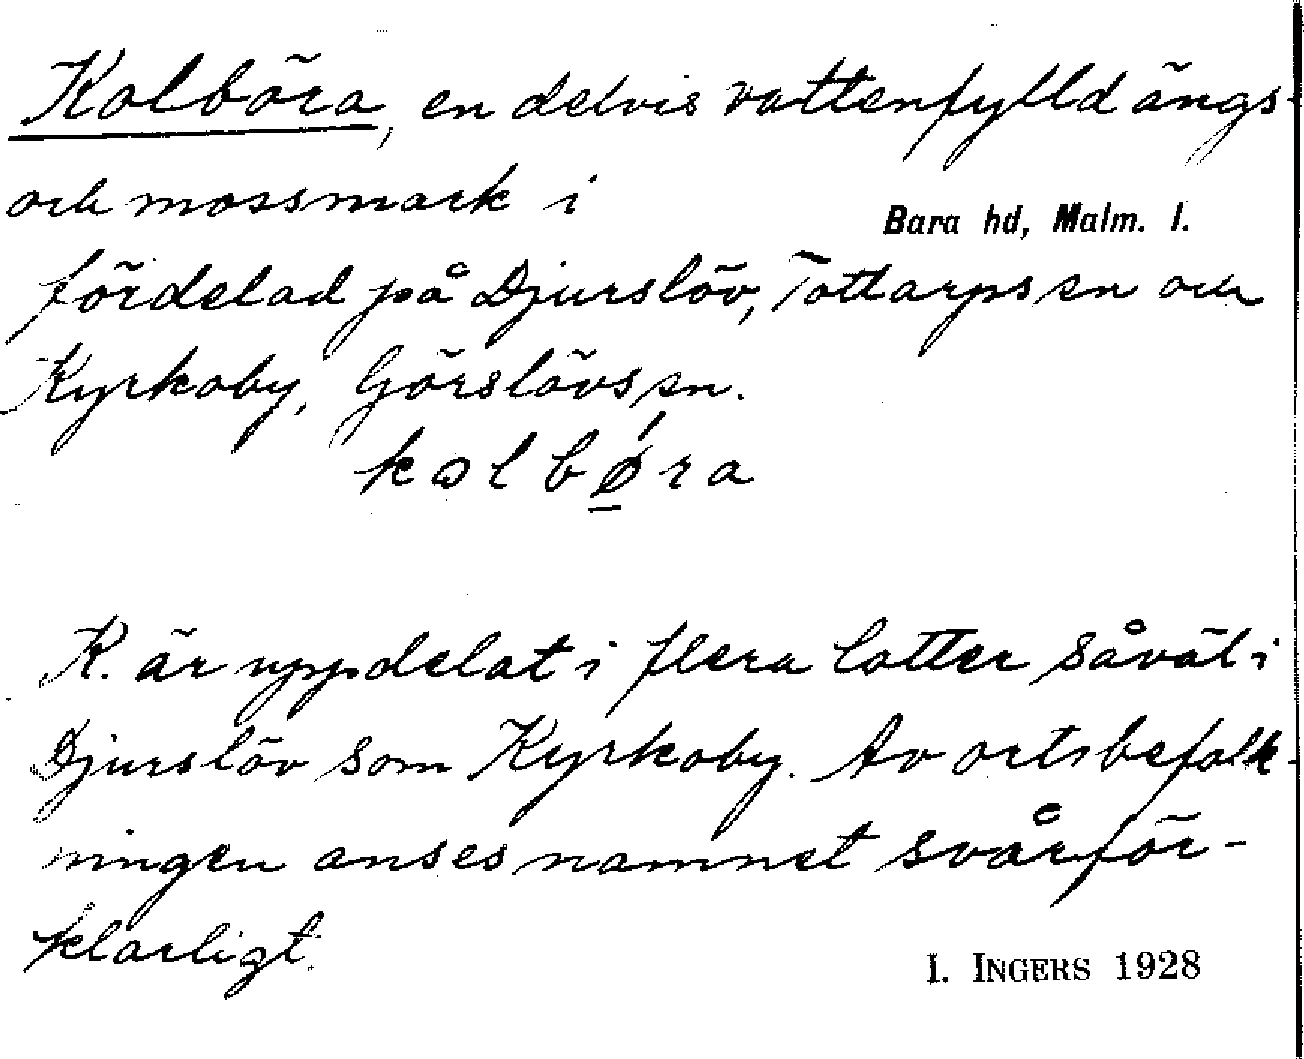 Kolböra, en delvis vattenfylld ängs-
och mossmark i
Bara hd, Malm. l.
fördelad på Djurslöv, Tottarps sn och
Kyrkoby, Görslövs sn.
kolbǿ̱ra
K. är uppdelat i flera lotter såväl i
Djurslöv som Kyrkoby. Av ortsbefolk-
ningen anses namnet svårför-
klarligt.
I. INGERS 1928